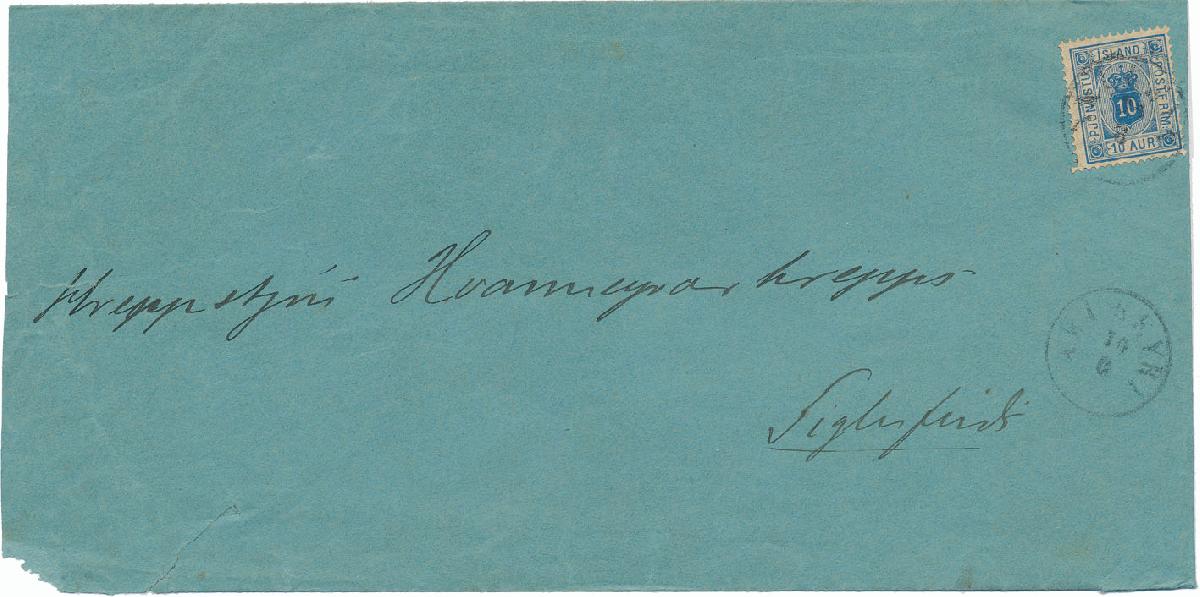 ÍSLAND
ÞJÓNUSTU
PÓSTFRÍM.
10
10 AUR
Hreppstjóri Hvanneyrarhrepps
AKUREYRI
14
6
Siglufirði